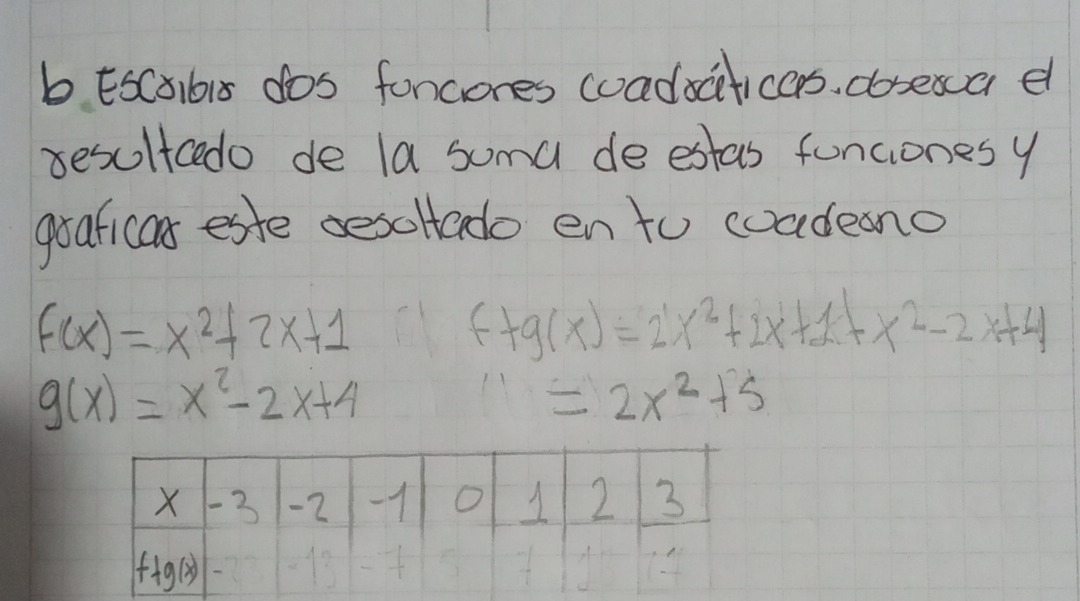 b. Escribir dos funciones cuadráticas. observa el
resultado de la suma de estas funciones y
graficar este resultado en tu cuaderno
f(x) = x²+2x+1 f+g(x) = 2x²+2x+1+x²-2x+4
g(x) = x²-2x+4 " = 2x²+5
x -3 -2 -1 0 1 2 3
f+g(x) - -13 -7 7